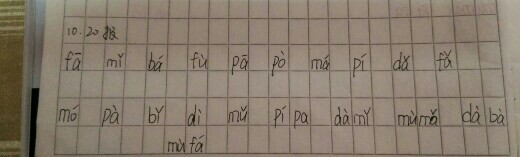 10.20
fā mǐ bá fù pā pò má pí dǎ fǎ
mó pà bǐ dì mǔ pí pa dà mǐ mù mǎ dà bà
mù fá